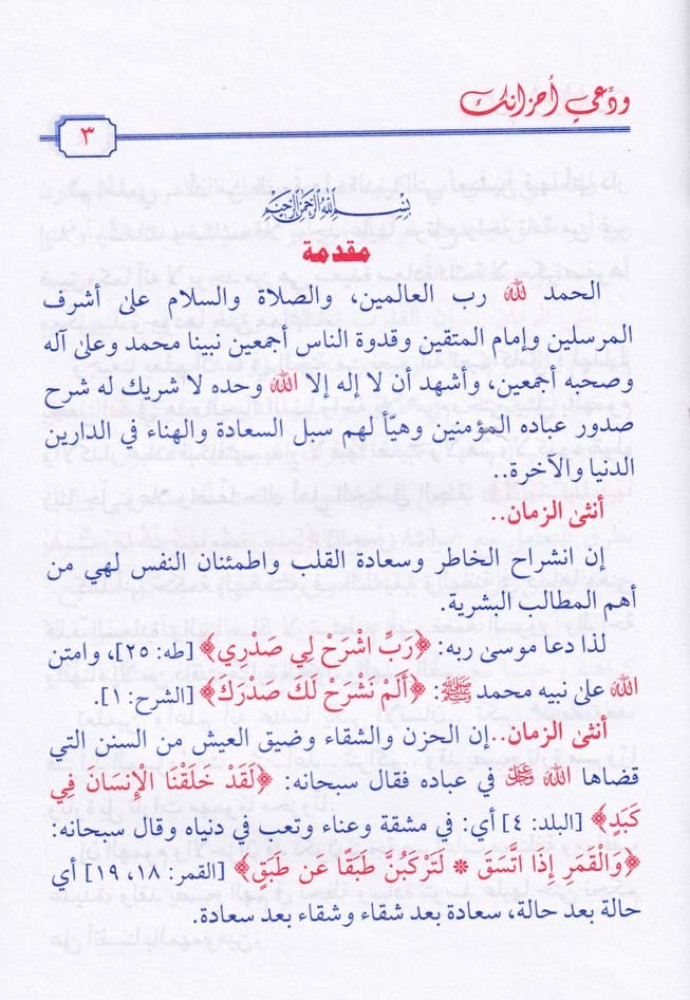 ودعي أحزانك
٣
بسم الله الرحمن الرحيم
مقدمة
الحمد لله رب العالمين، والصلاة والسلام على أشرف
المرسلين وإمام المتقين وقدوة الناس أجمعين نبينا محمد وعلى آله
وصحبه أجمعين، وأشهد أن لا إله إلا الله وحده لا شريك له شرح
صدور عباده المؤمنين وهيأ لهم سبل السعادة والهناء في الدارين
الدنيا والآخرة..
أنثى الزمان..
إن انشراح الخاطر وسعادة القلب واطمئنان النفس لهي من
أهم المطالب البشرية.
لذا دعا موسى ربه: ﴿رَبِّ اشْرَحْ لِي صَدْرِي﴾ [طه: ٢٥]، وامتن
الله على نبيه محمد ﷺ: ﴿أَلَمْ نَشْرَحْ لَكَ صَدْرَكَ﴾ [الشرح: ١].
أنثى الزمان..إن الحزن والشقاء وضيق العيش من السنن التي
قضاها الله ﷻ في عباده فقال سبحانه: ﴿لَقَدْ خَلَقْنَا الإِنسَانَ فِي
كَبَدٍ﴾ [البلد: ٤] أي: في مشقة وعناء وتعب في دنياه وقال سبحانه:
﴿وَالْقَمَرِ إِذَا اتَّسَقَ * لَتَرْكَبُنَّ طَبَقًا عَن طَبَقٍ﴾ [القمر: ١٨، ١٩] أي
حالة بعد حالة، سعادة بعد شقاء وشقاء بعد سعادة.